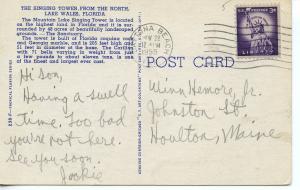 THE SINGING TOWER, FROM THE NORTH,
LAKE WALES, FLORIDA
The Mountain Lake Singing Tower is located
on the highest land in Florida and it is sur-
rounded by 48 acres of beautifully landscaped
grounds. — The Sanctuary.
The tower is built of Florida coquina rock
and Georgia marble, and is 205 feet high and
51 feet in diameter at the base. The Carillon
with 71 bells varying in weight from just
a few pounds to about eleven tons, is one
of the finest and largest ever cast.
BEACH
PM
1955
POST CARD
Hi Son,
Having a swell
time. Too bad
you're not here.
See you soon.
Jackie
Winn Hemore, Jr.
Johnston St.
Houlton, Maine